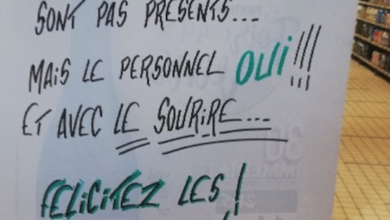 SONT PAS PRÉSENTS...
MAIS LE PERSONNEL OUI!!!
ET AVEC LE SOURIRE...
FELICITEZ LES!